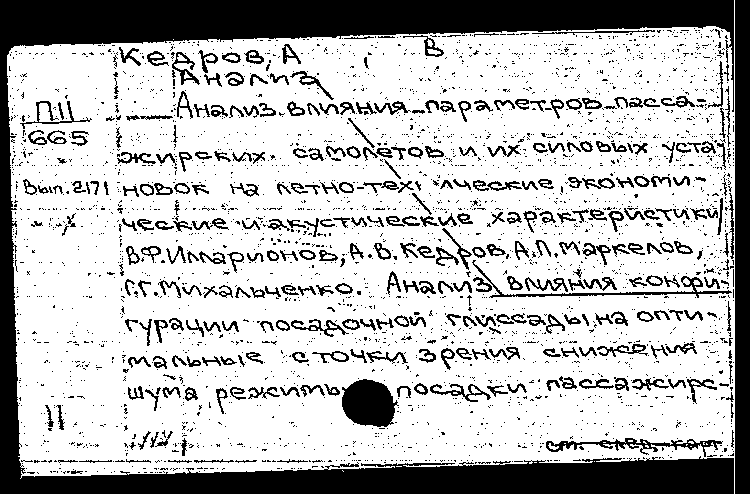 Кедров, А В
Анализ
П11
665
Вып. 2171
Анализ влияния параметров пасса-
жирских самолетов и их силовых уста-
новок на летно-технические, экономи-
ческие и акустические характеристики
В.Ф.Илларионов, А.В.Кедров, А.П.Маркелов,
Г.Г.Михальченко. Анализ влияния конфи-
гурации посадочной глиссады на опти-
мальные с точки зрения снижения
шума режимы посадки пассажирс-
11
см. след. карт.